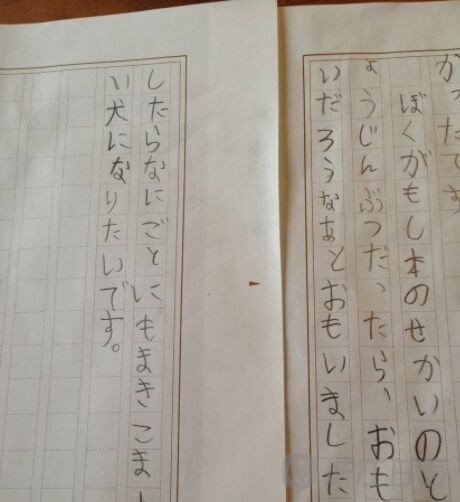 かったです
ぼくがもし本のせかいのと
ょうじんぶつだったら、おも
いだろうなあとおもいました
したらなにごとにもまきこま
い犬になりたいです。